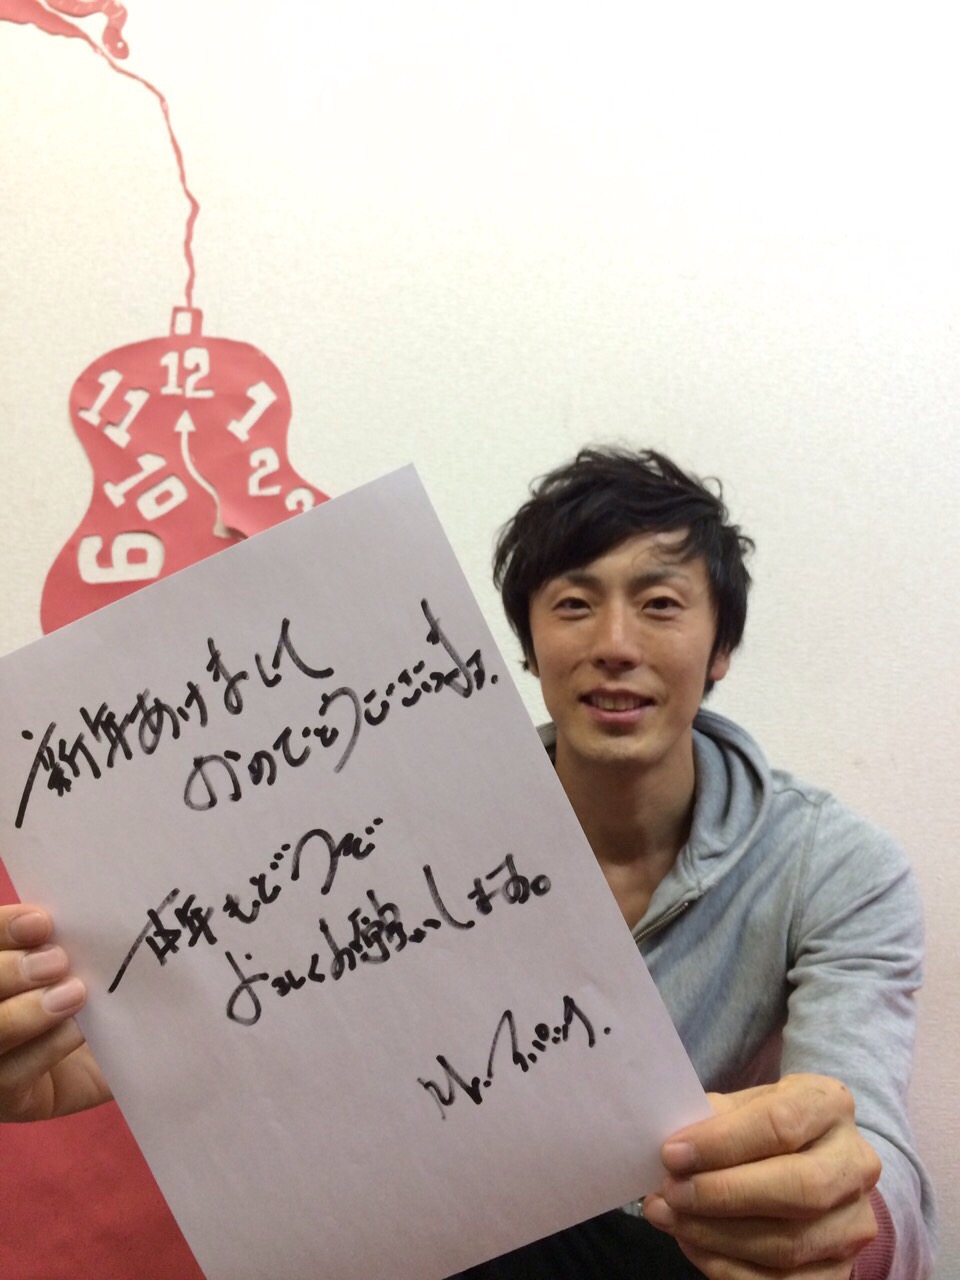 12
11
1
10
2
9
新年あけまして
おめでとうございます。
本年もどうぞ
よろしくお願いします。